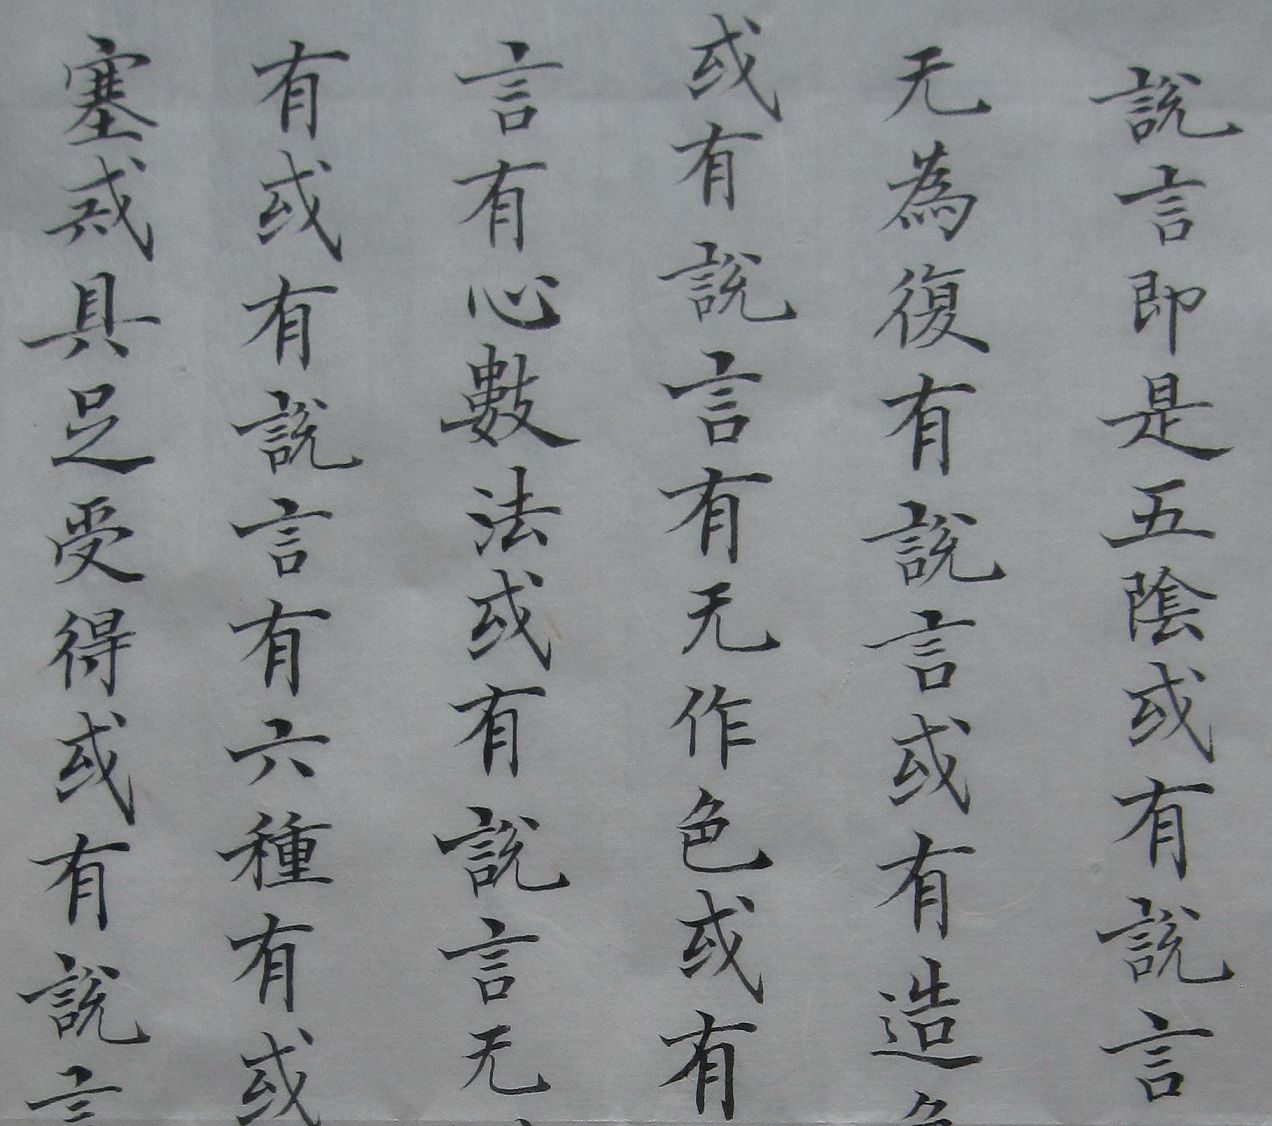 說言即是五陰或有說言
无為復有說言或有造色
或有說言有无作色或有
言有心數法或有說言无
有或有說言有六種有或
塞戒具足受得或有說言